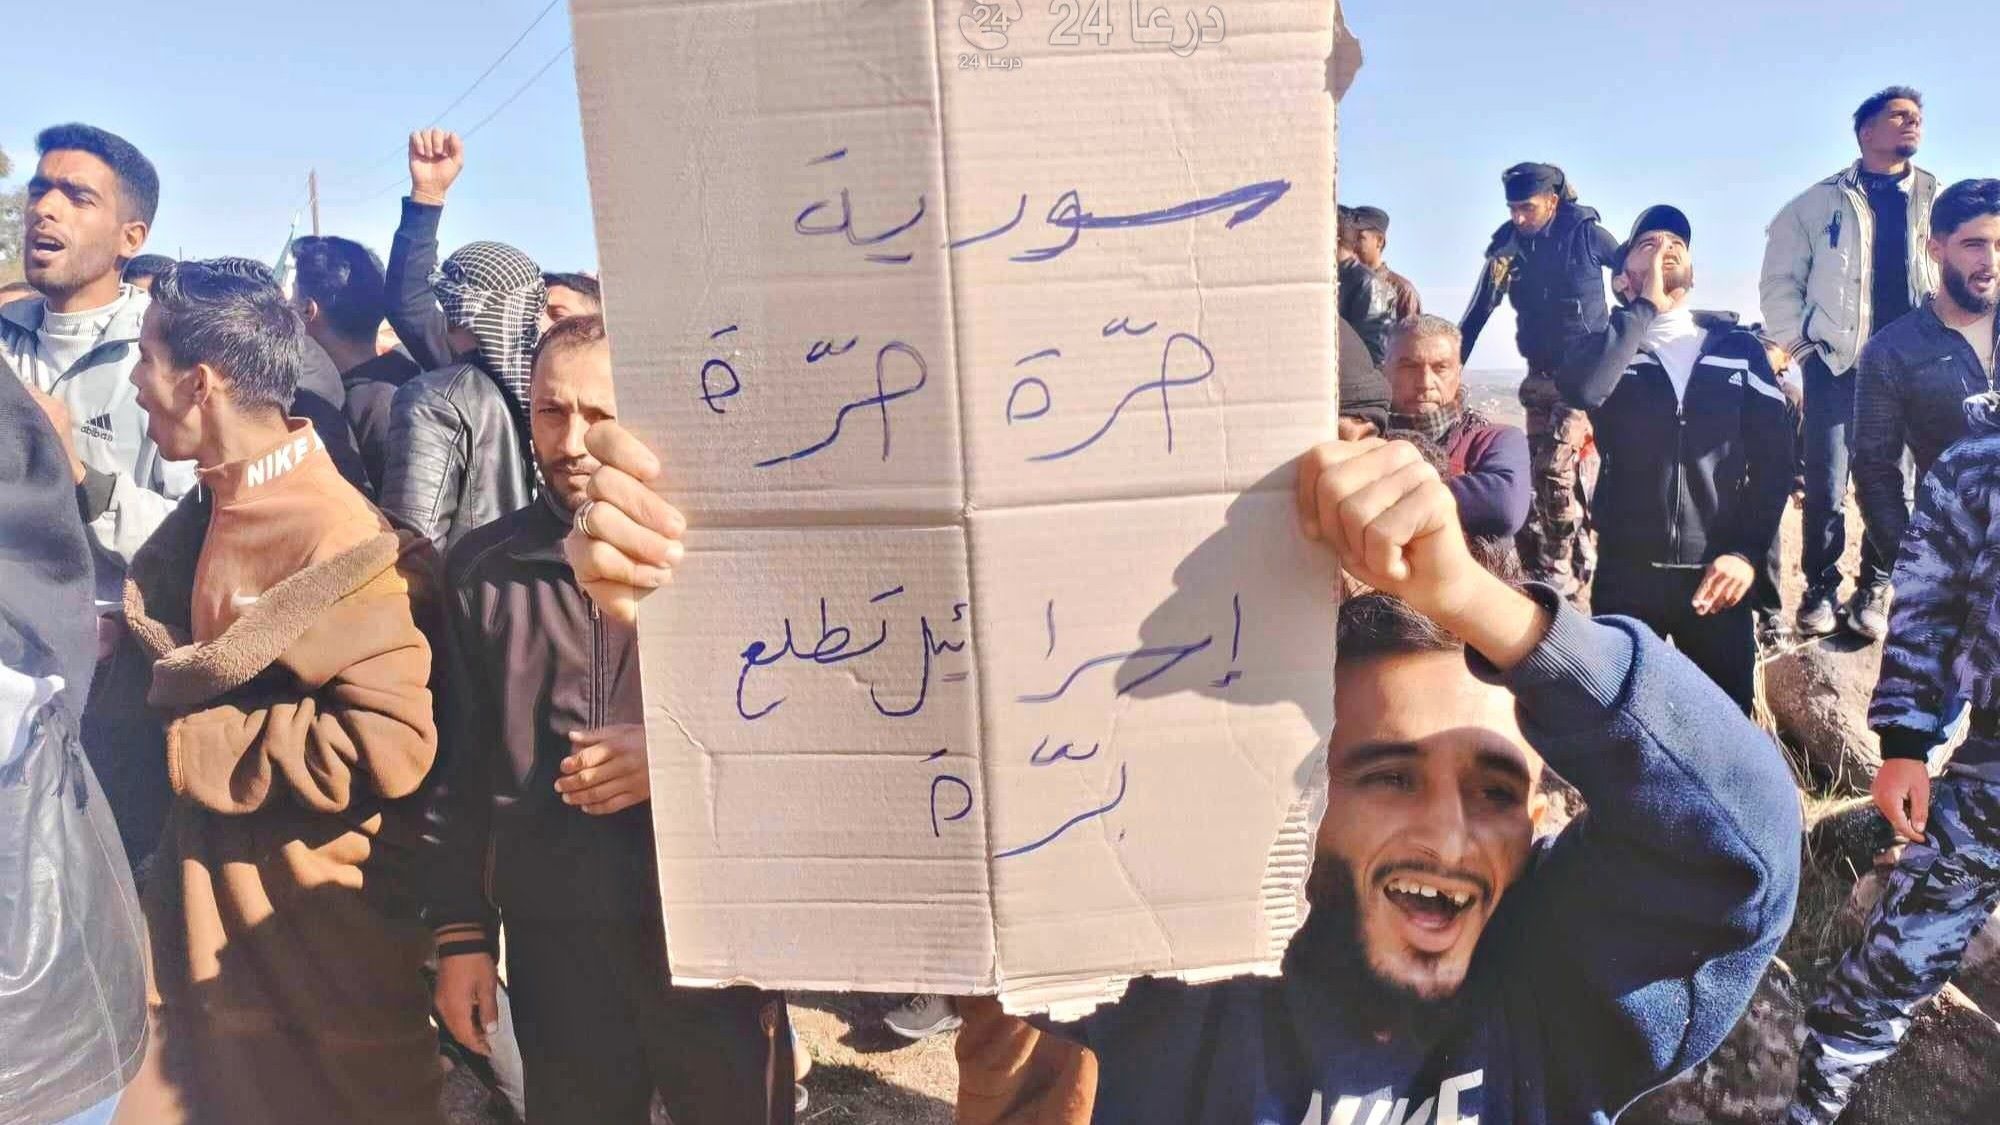 درعا 24
24
درعا 24
سورية
حرّة حرّة
إسرائيل تطلع
برّة
NIKE
adidas
adidas
NIKE